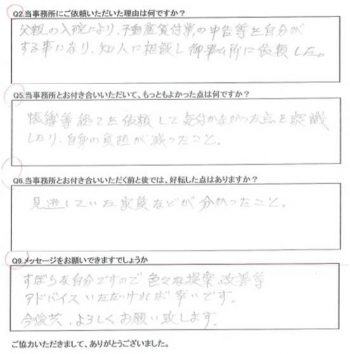 Q2.当事務所にご依頼いただいた理由は何ですか?
父親の入院により、不動産賃貸業の申告等を自分が
する事になり、知人に相談し御事務所に依頼した。
Q5.当事務所とお付き合いいただいて、もっともよかった点は何ですか?
帳簿等全てを依頼して
したり、自身の負担が減ったこと。
Q6.当事務所とお付き合いいただく前と後では、好転した点はありますか?
見逃していた などが分かったこと。
Q9.メッセージをお願いできますでしょうか
ずぼらな自分ですので色々な提案、改善等
アドバイスいただければ幸いです。
今後共、よろしくお願い致します。
ご協力いただきまして、ありがとうございました。